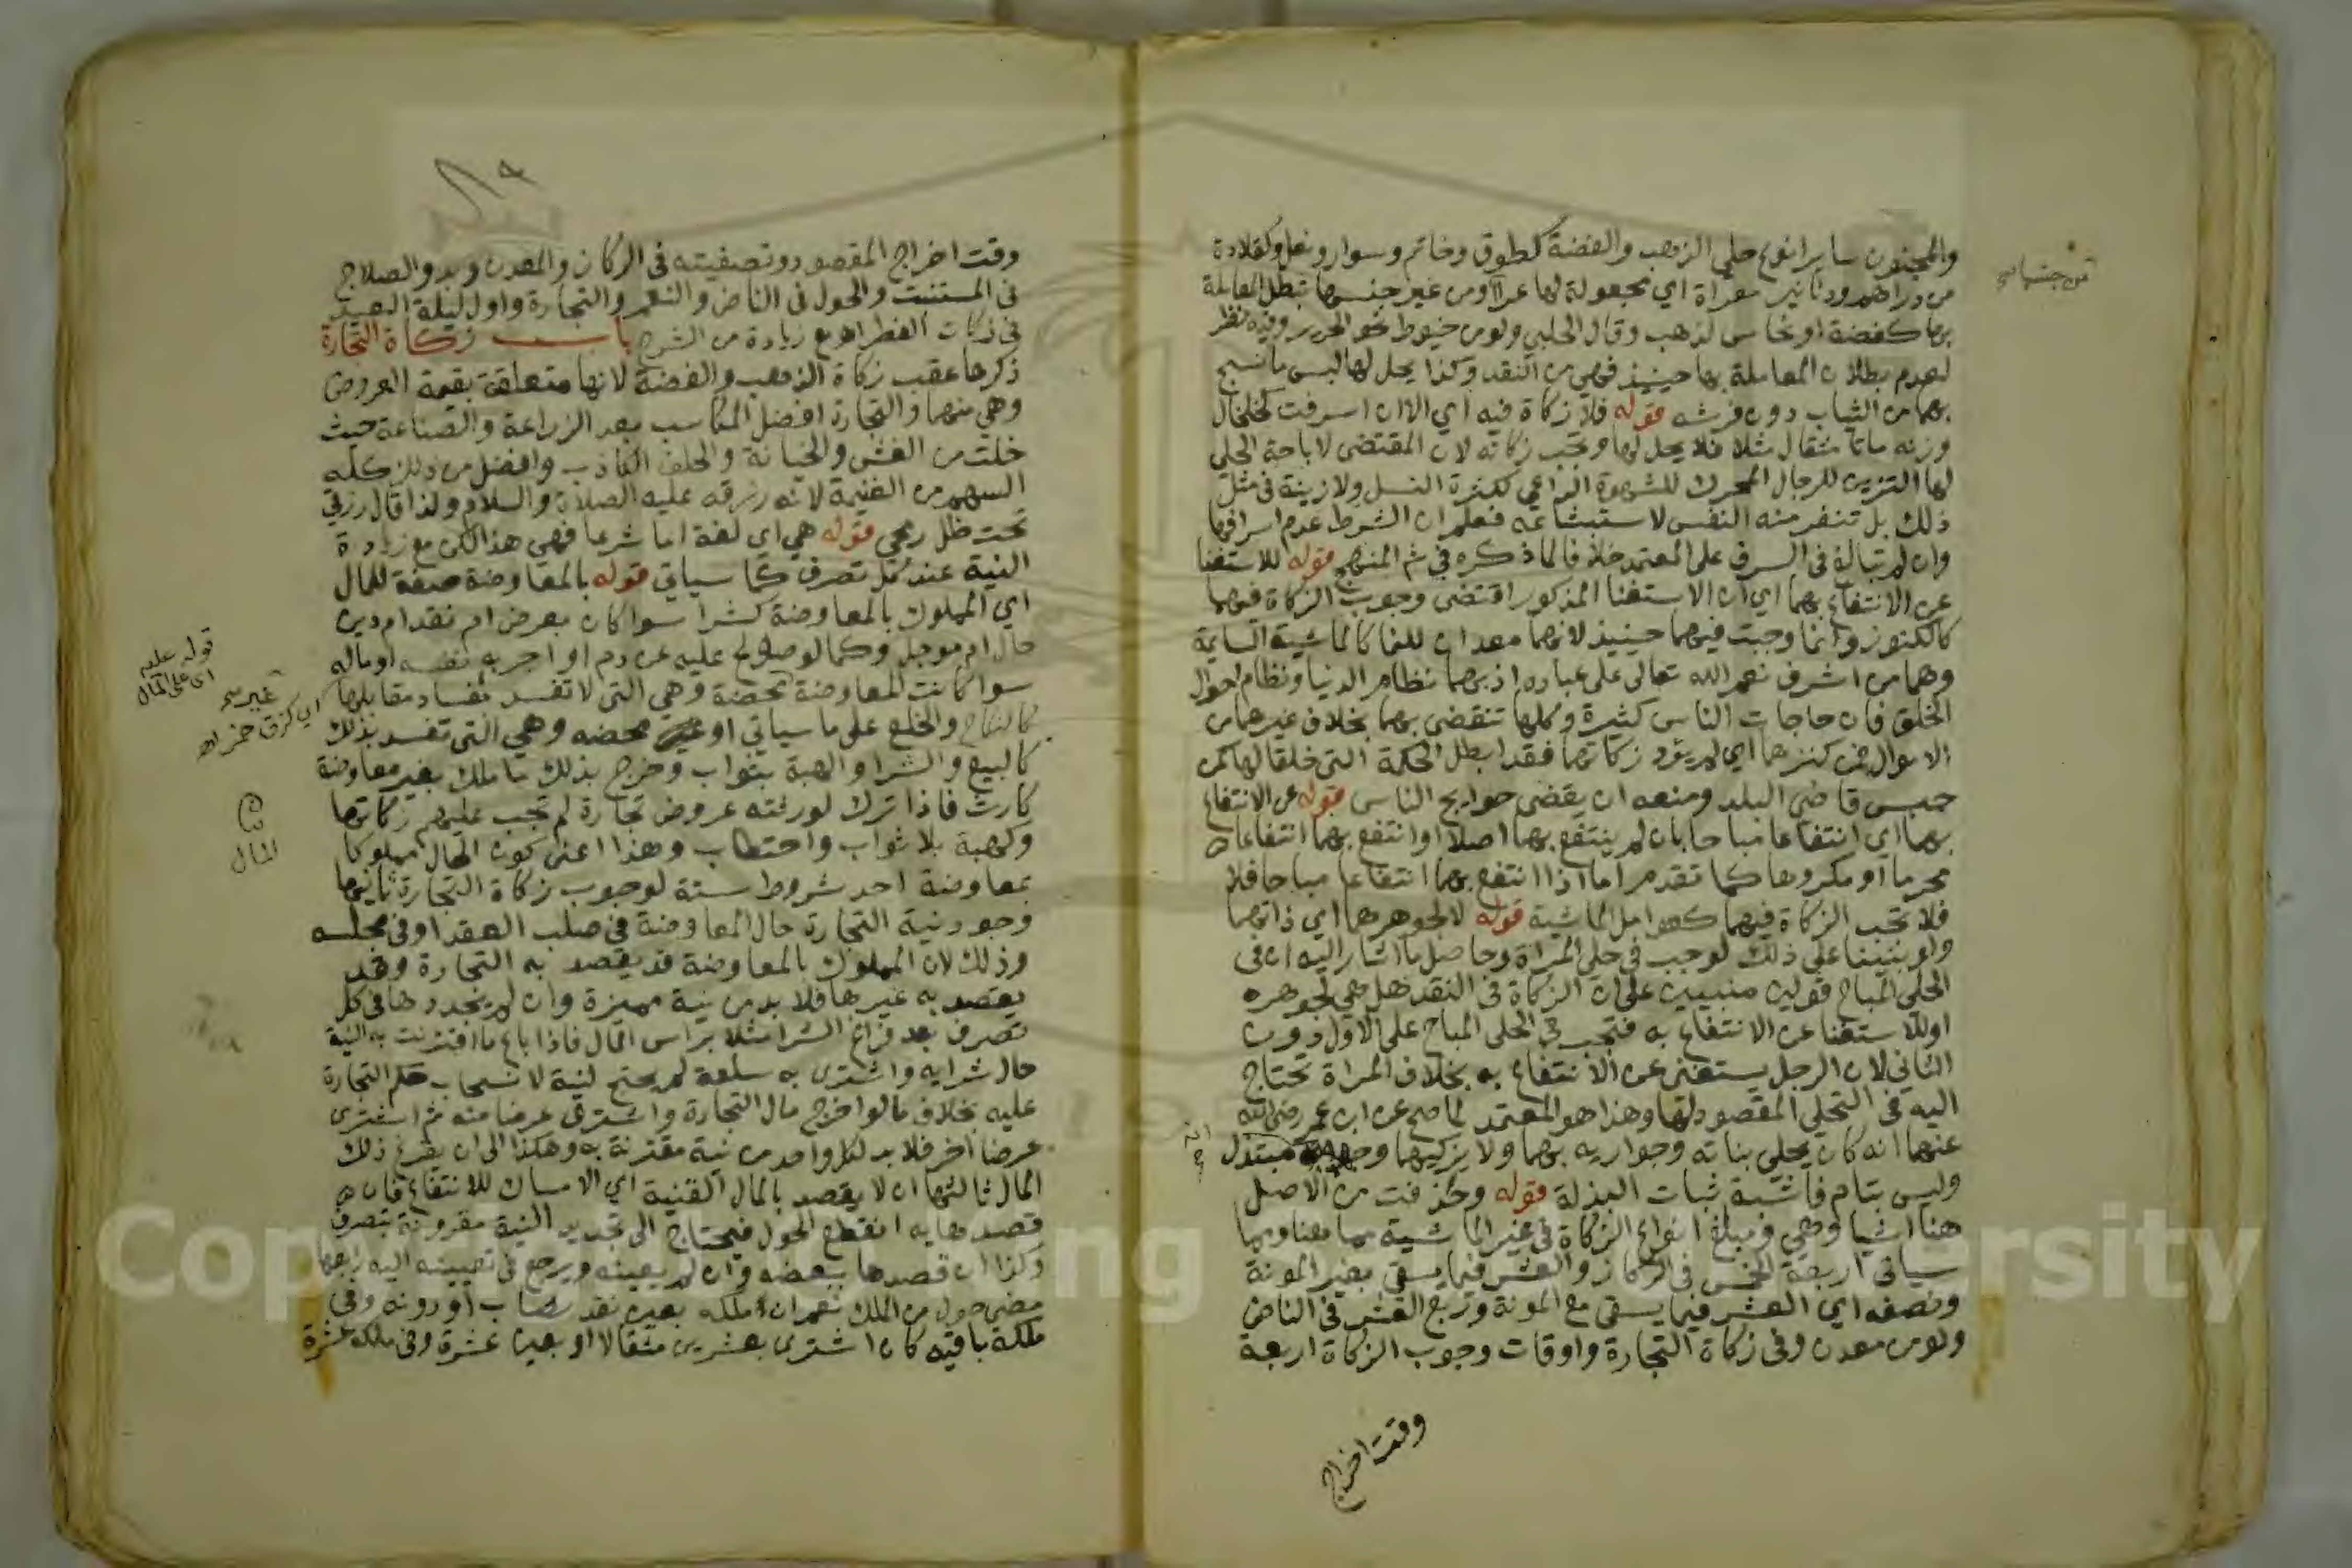 والمجنون ساير انواع حلي الذهب والفضة كطوق وخاتم وسوار ونعل وكقلادة
من دراهم ودنانير معراة اي مجعولة لها عرا ومن غير جنسها تبطل المعاملة
بها كفضة او نحاس لذهب وقال الحلبي ولو من خيوط نحو الحرير وفيه نظر
لعدم بطلان المعاملة بها حينيذ فهي من النقد وكذا يحل لها لبس ما نسج
بهما من الثياب دون فرشه قوله فلا زكاة فيه اي الا ان اسرفت كخلخال
وزنه ماتا مثقال مثلا فلا يحل لها وتجب زكاته لان المقتضى لاباحة الحلي
لها التزين للرجال المحرك للشهوة الداعي لكثرة النسل ولا زينة في مثل
ذلك بل تنفر منه النفس لاستبشاعه فعلم ان الشرط عدم اسرافها
وان لم تبالغ في السرف على المعتمد خلافا لما ذكره في شم المنهج قوله للاستغنا
عن الانتفاع بهما اي ان الاستغنا المذكور اقتضى وجوب الزكاة فيهما
كالكنوز وانما وجبت فيهما حينيذ لانهما معدان للنما كالماشية السايمة
وهما من اشرف نعم الله تعالى على عباده اذ بهما نظام الدنيا ونظام احوال
الخلق فان حاجات الناس كثيرة وكلها تنقضي بهما بخلاف غيرهما من
الاموال فمن كنزهما اي لم يؤد زكاتهما فقد ابطل الحكمة التي خلقا لها كمن
حبس قاضي البلد ومنعه ان يقضي حوايج الناس قوله عن الانتفاع
بهما اي انتفاعا مباحا بان لم ينتفع بهما اصلا او انتفع بهما انتفاعا
محرما او مكروها كما تقدم اما اذا انتفع بهما انتفاعا مباحا فلا
فلا تجب الزكاة فيهما كعوامل الماشية قوله لا لجوهرهما اي ذاتهما
ولو بنينا على ذلك لوجب في حلي المراة وحاصل ما اشار اليه ان في
الحلي المباح قولين مبنيين على ان الزكاة في النقد هل هي لجوهره
او للاستغنا عن الانتفاع به فتجب في الحلي المباح على الاول دون
الثاني لان الرجل يستغنى عن الانتفاع به بخلاف المراة تحتاج
اليه في التحلي المقصود لها وهذا هو المعتمد لما صح عن ابن عمر رضي الله
عنهما انه كان يحلي بناته وجواريه بهما ولا يزكيهما مبتذل
وليس بتام فاشبه ثياب البذلة قوله وحذفت من الاصل
هنا اشيا وهي ومبلغ انواع الزكاة في غير الماشية مما هنا ومما
سياتي اربعة الخمس في الركاز والعشر فيما يسقي بغير المونة
ونصفه اي العشر فيما يسقى مع المونة وربع العشر في الناض
ولو من معدن وفي زكاة التجارة واوقات وجوب الزكاة اربعة
وقت اخراج
وقت اخراج المقصود وتصفيته في الركاز والمعدن وبدو الصلاح
في المستنبت والحول في الناض والنعم والتجارة واول ليلة العيد
في زكات الفطر اهـ مع زيادة من الشرح باب زكاة التجارة
ذكرها عقب زكاة الذهب والفضة لانها متعلقة بقيمة العروض
وهي منهما والتجارة افضل المكاسب بعد الزراعة والصناعة حيث
خلت من الغش والخيانة والحلف الكاذب وافضل من ذلك كله
السهم من الغنيمة لانه رزقه عليه الصلاة والسلام ولذا قال رزقي
تحت ظل رمحي قوله هي اي لغة اما شرعا فهي هذا لكن مع زيادة
النية عند كل تصرف كما سياتي قوله بالمعاوضة صفة للمال
اي المملوك بالمعاوضة كشرا سوا كان بعرض ام نقد ام دين
حال ام موجل وكما لو صولح عليه عن دم او اجر به نفسه او ماله
سوا كانت المعاوضة محضة وهي التي لا تفسد بفساد مقابلها
كالنكاح والخلع على ما سياتي او غير محضه وهي التي تفسد بذلك
كالبيع والشرا والهبة بثواب وخرج بذلك ما ملك بغير معاوضة
كارث فاذا ترك لورثته عروض تجارة لم تجب عليهم زكاتها
وكهبة بلا ثواب واحتطاب وهذا اعنى كون المال مملوكا
بمعاوضة احد شروط ستة لوجوب زكاة التجارة ثانيها
وجود نية التجارة حال المعاوضة في صلب العقد او في مجلسه
وذلك لان المملوك بالمعاوضة قد يقصد به التجارة وقد
يقصد به غيرها فلا بد من نية مميزة وان لم يجددها في كل
تصرف بعد فراغ الشرا مثلا براس المال فاذا باع ما اقترنت به النية
حال شرايه واشترى به سلعة لم يحتج لنية لانسحاب حكم التجارة
عليه بخلاف ما لو اخرج مال التجارة واشترى عرضا منه ثم اشترى
عرضا اخر فلا بد لكل واحد من نية مقترنة به وهكذا الى ان يفرغ ذلك
المال ثالثها ان لا يقصد بالمال القنية اي الامساك للانتفاع فان
قصدها به انقطع الحول فيحتاج الى تجديد النية مقرونة بتصرف
وكذا ان قصدها ببعضه وان لم يعينه ويرجع في تعيينه اليه رابعها
مضى حول من الملك نعم ان ملكه بعين نقد نصاب او دونه وفي
ملكه باقيه كان اشترى بعشرين مثقالا او بعين عشرة وفي ملكه عشرة
قوله عليه
اي على المال
غير صح
اي كزق خمر اهـ
المال
Copyright © King Saud University